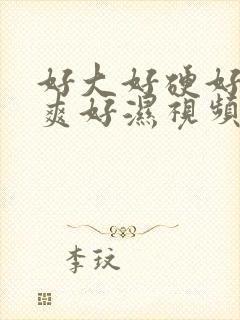 好大好硬好
爽好濕視頻
李玟